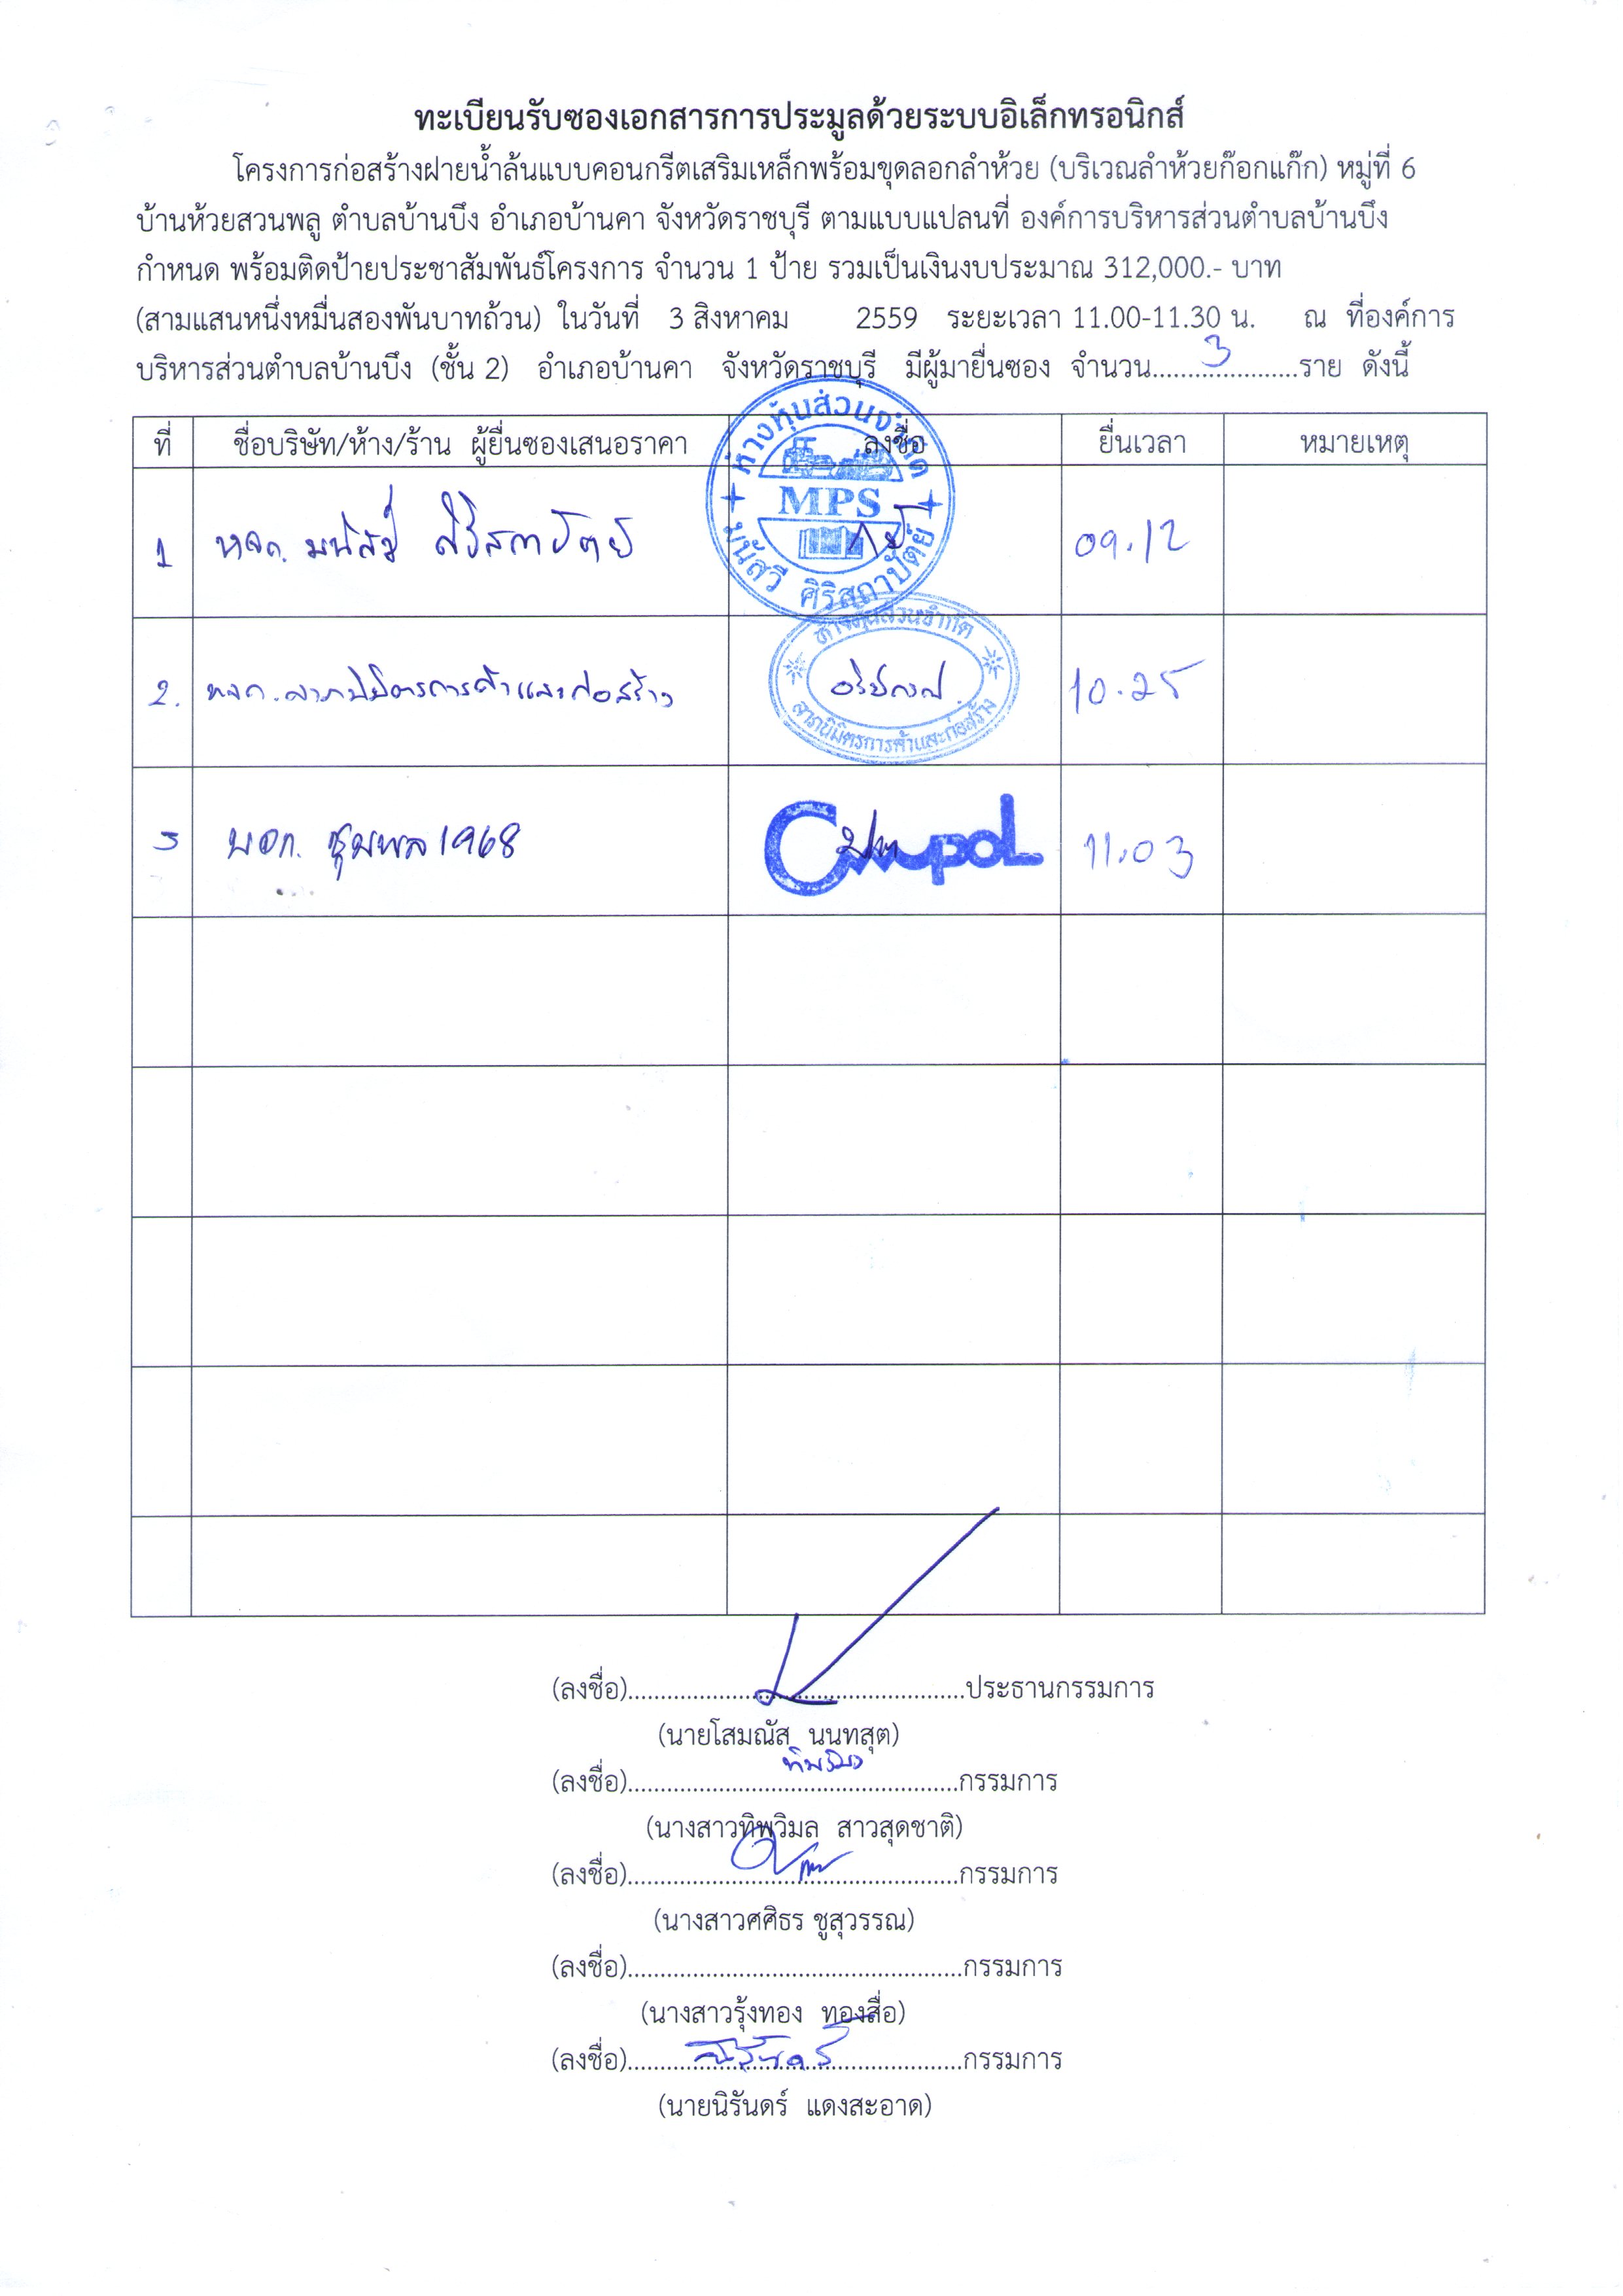 ทะเบียนรับซองเอกสารการประมูลด้วยระบบอิเล็กทรอนิกส์
โครงการก่อสร้างฝายน้ำล้นแบบคอนกรีตเสริมเหล็กพร้อมขุดลอกลำห้วย (บริเวณลำห้วยก๊อกแก๊ก) หมู่ที่ 6
บ้านห้วยสวนพลู ตำบลบ้านบึง อำเภอบ้านคา จังหวัดราชบุรี ตามแบบแปลนที่ องค์การบริหารส่วนตำบลบ้านบึง
กำหนด พร้อมติดป้ายประชาสัมพันธ์โครงการ จำนวน 1 ป้าย รวมเป็นเงินงบประมาณ 312,000.- บาท
(สามแสนหนึ่งหมื่นสองพันบาทถ้วน) ในวันที่ 3 สิงหาคม 2559 ระยะเวลา 11.00-11.30 น. ณ ที่องค์การ
บริหารส่วนตำบลบ้านบึง (ชั้น 2) อำเภอบ้านคา จังหวัดราชบุรี มีผู้มายื่นซอง จำนวน.........3.........ราย ดังนี้
ที่ ชื่อบริษัท/ห้าง/ร้าน ผู้ยื่นซองเสนอราคา ลงชื่อ ยื่นเวลา หมายเหตุ
ห้างหุ้นส่วนจำกัด
MPS
มนัสวี ศิริสถาปัตย์
1 หจก. มนัสวี ศิริสถาปัตย์ 09.12
ห้างหุ้นส่วนจำกัด
2. หจก.ลาภนิมิตรการค้าและก่อสร้าง 10.25
ลาภนิมิตรการค้าและก่อสร้าง
3 บจก. ชุมพล 1968 11.03
(ลงชื่อ)....................ประธานกรรมการ
(นายโสมณัส นนทสุต)
(ลงชื่อ)....................กรรมการ
(นางสาวทิพวิมล สาวสุดชาติ)
(ลงชื่อ)....................กรรมการ
(นางสาวศศิธร ชูสุวรรณ)
(ลงชื่อ)....................กรรมการ
(นางสาวรุ้งทอง ทองสื่อ)
(ลงชื่อ)..........นิรันดร์..........กรรมการ
(นายนิรันดร์ แดงสะอาด)